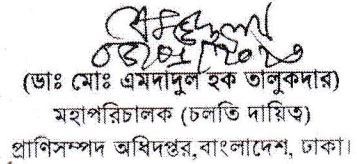 (ডাঃ মোঃ এমদাদুল হক তালুকদার)
মহাপরিচালক (চলতি দায়িত্ব)
প্রাণিসম্পদ অধিদপ্তর, বাংলাদেশ, ঢাকা।